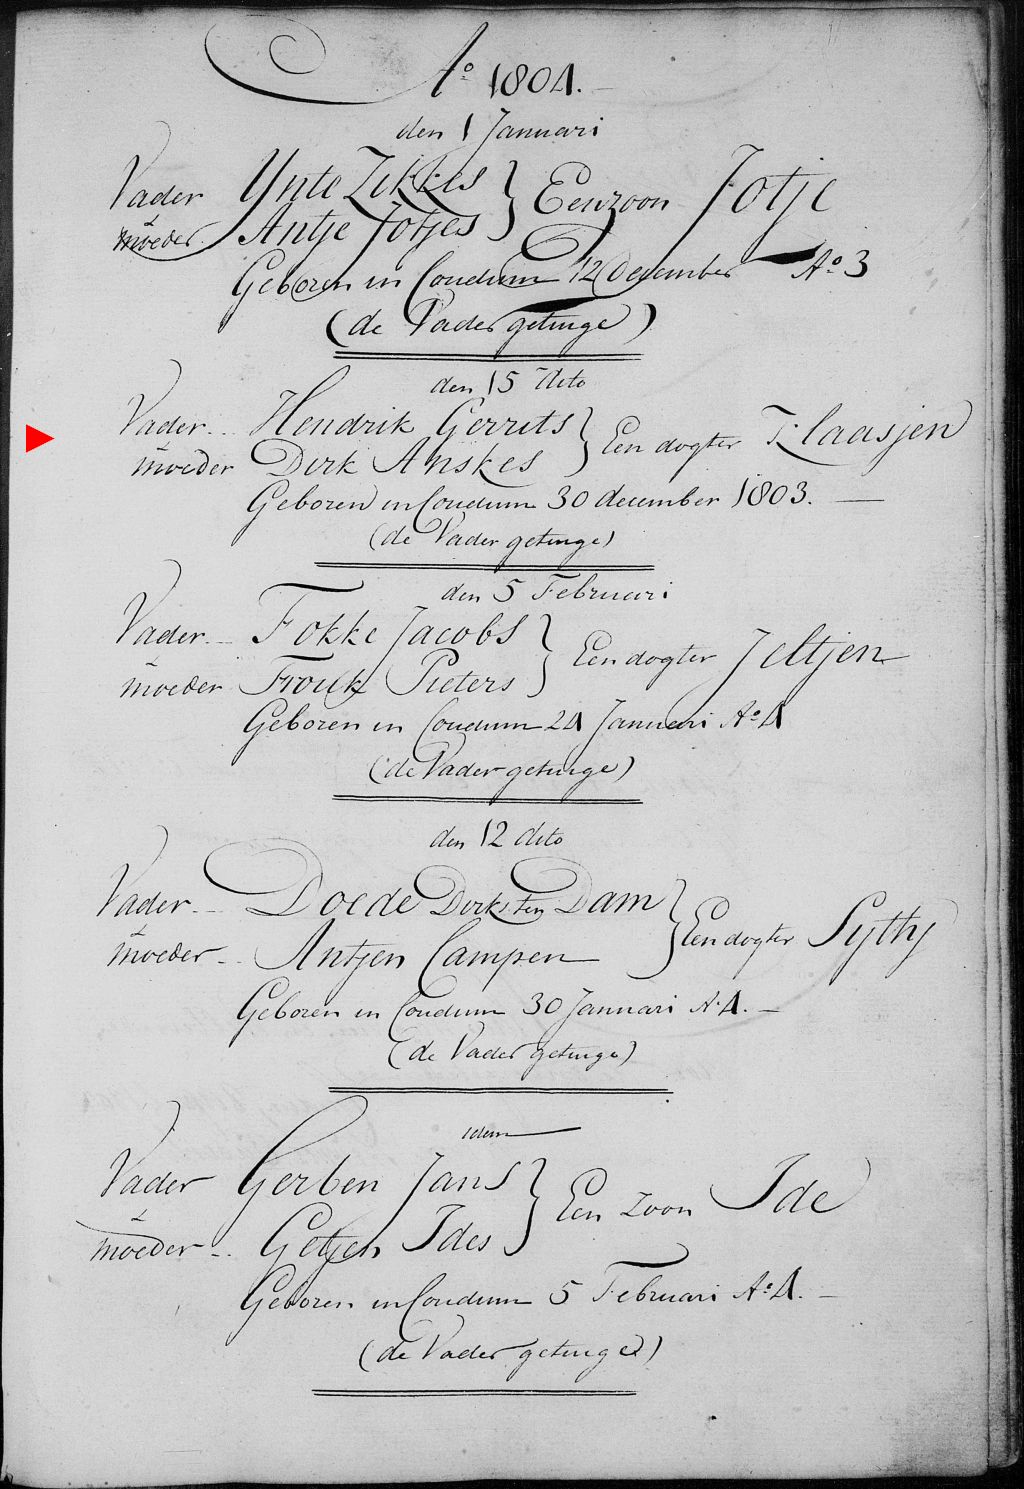 Aº 1804.
den 1 Januari
Vader Ynte Zekkes } Een zoon Jotje
& moeder Antje Jotjes
Geboren in Coudum 12 december Aº 3
(de Vader getuige)
den 15 dito
Vader Hendrik Gerrits } Een dogter Klaasjen
moeder Dirk Anskes
Geboren in Coudum 30 december 1803.
(de Vader getuige)
den 5 Februari
Vader Fokke Jacobs } Een dogter Jeltjen
& moeder Frouk Pieters
Geboren in Coudum 24 Januari Aº 4
(de Vader getuige)
den 12 dito
Vader Doede Dirks ten Dam } Een dogter Sytty
& moeder Antjen Campen
Geboren in Coudum 30 Januari Aº 4.
(de Vader getuige)
idem
Vader Gerben Jans } Een zoon Ide
& moeder Getjen Ides
Geboren in Coudum 5 Februari Aº 4.
(de Vader getuige)